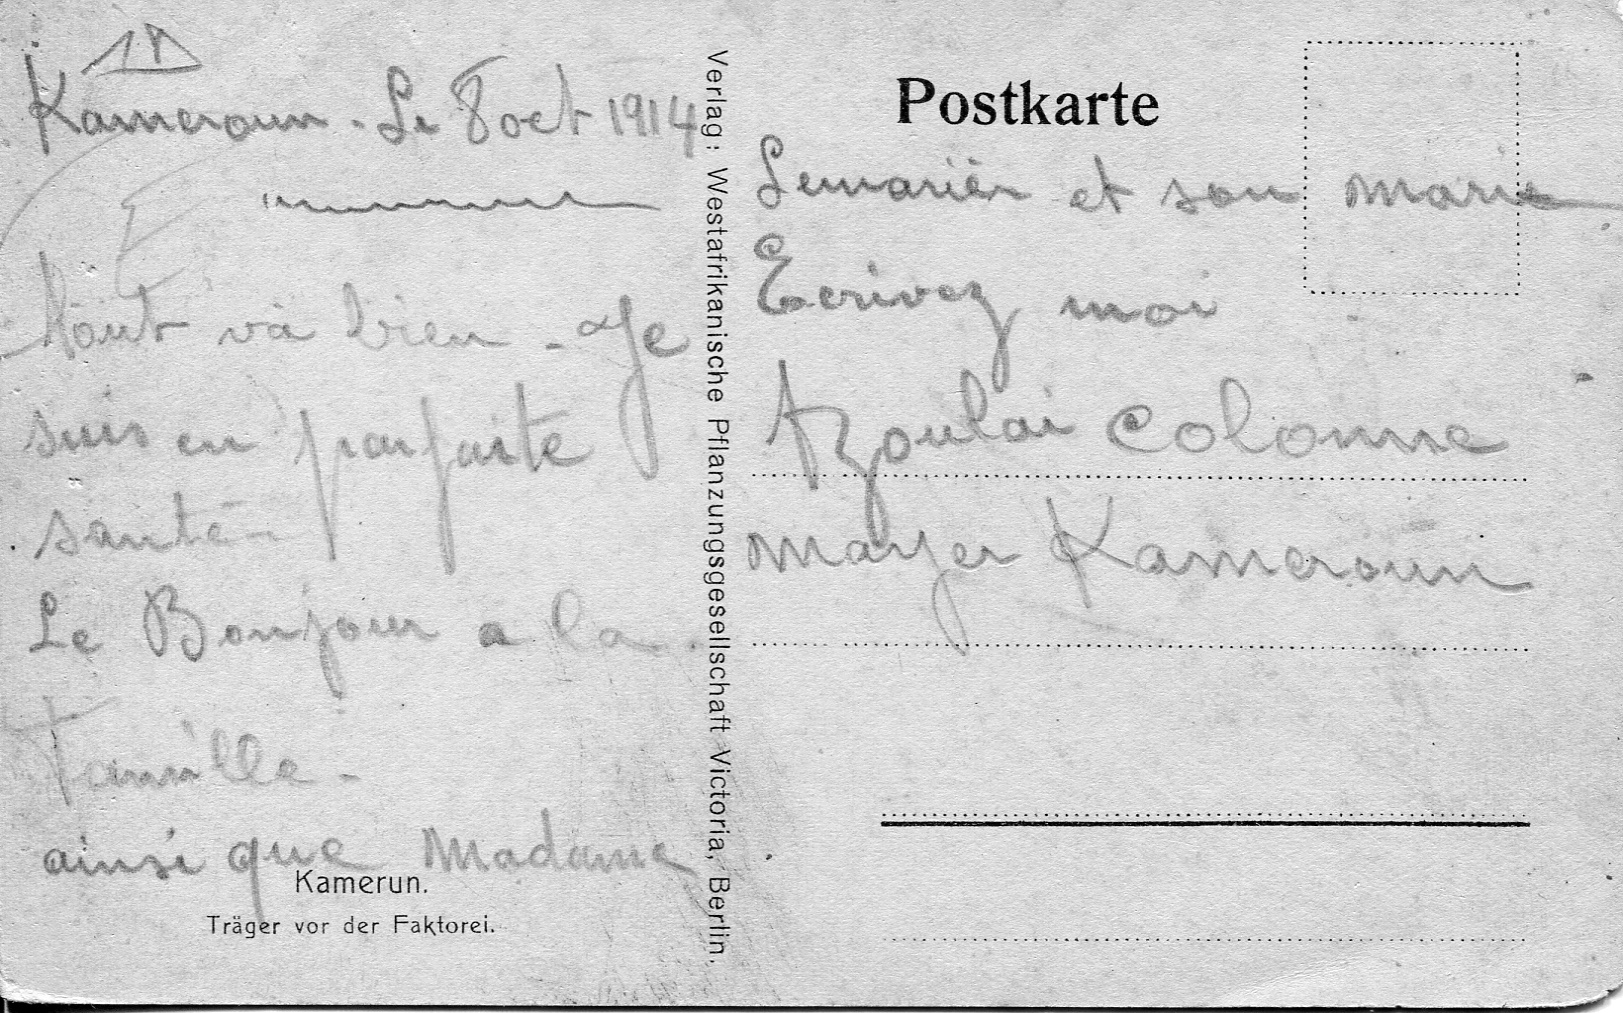 Kameroun - Le 8 oct 1914
Tout va bien - Je
suis en parfaite
santé -
Le Bonjour a la
Famille -
ainsi que Madame
Kamerun.
Träger vor der Faktorei.
Verlag: Westafrikanische Pflanzungsgesellschaft Victoria, Berlin.
Postkarte
Lemariér et son marie
Ecrivez moi
Azoulai Colonne
Mayer Kameroun